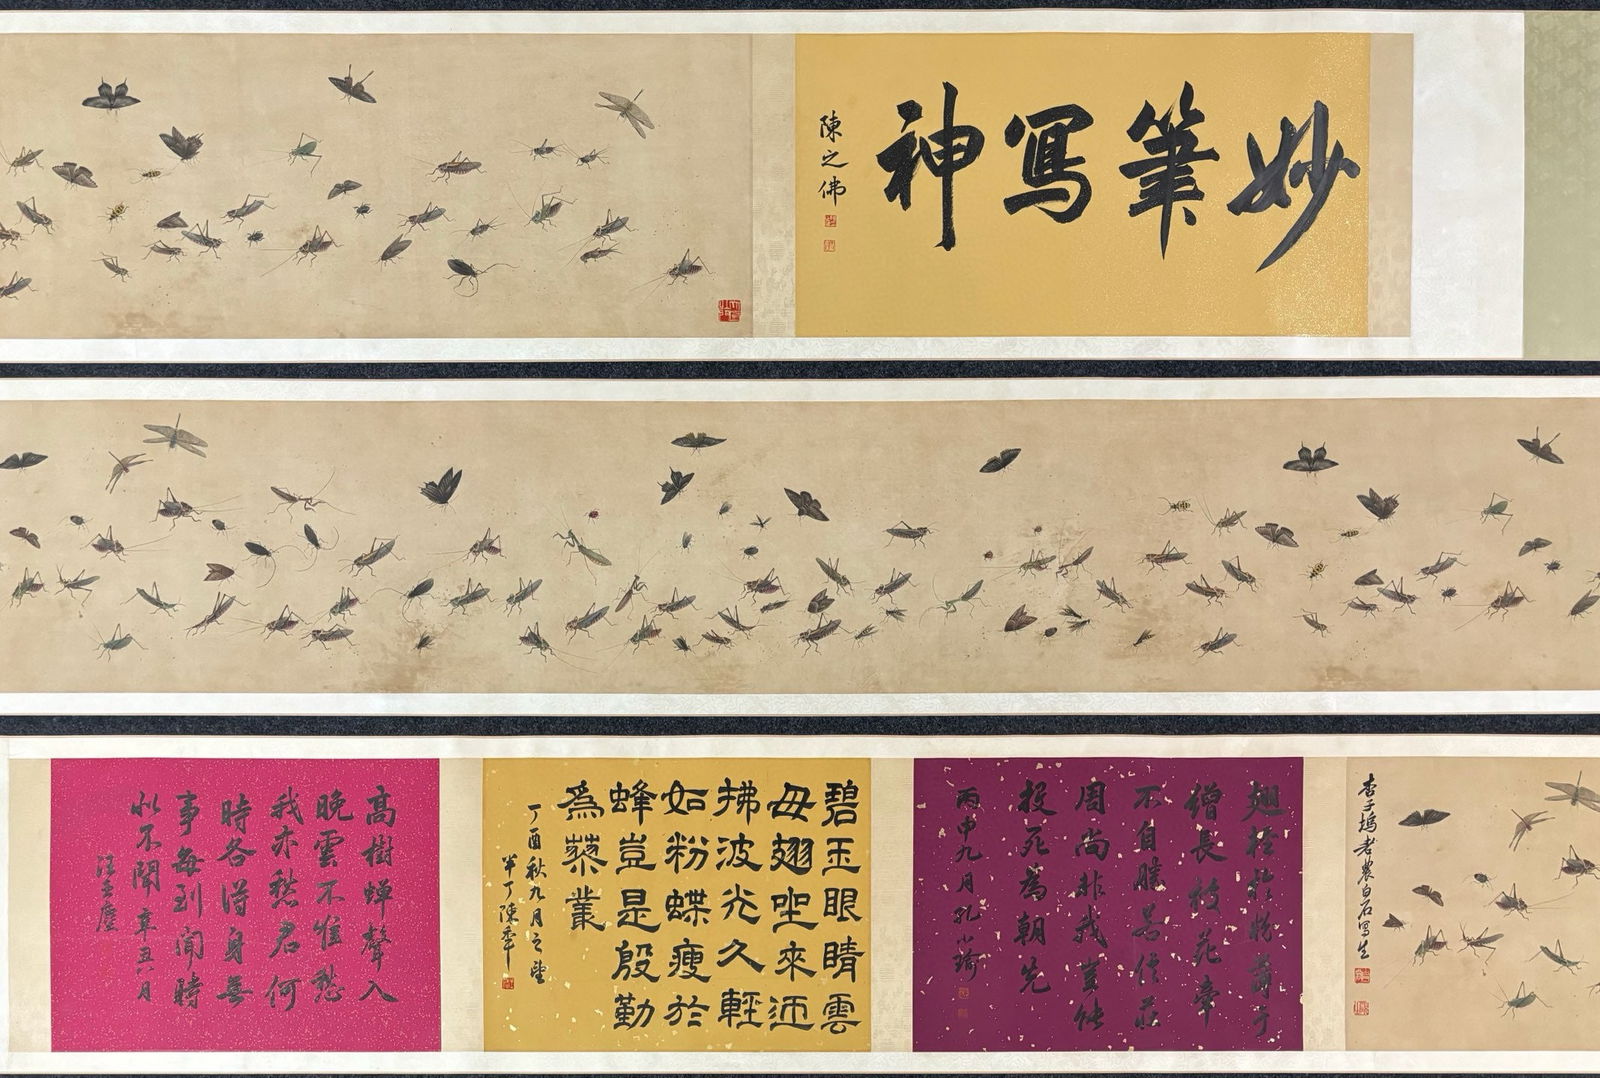 妙筆寫神
陳之佛
杏子塢老農白石寫生
翅輕於粉薄于
繒長被花牽
不自勝若信莊
周尚非我豈能
投死為韓兒
丙申九月孔小瑜
碧玉眼睛雲
母翅坐來迊
拂波光久輕
如粉蝶瘦於
蜂豈是殷勤
為蓼叢
丁酉秋九月之望
半丁陳年
高樹蟬聲入
晚雲不惟愁
我亦愁君何
時各得身無
事每到聞時
似不聞 辛丑八月